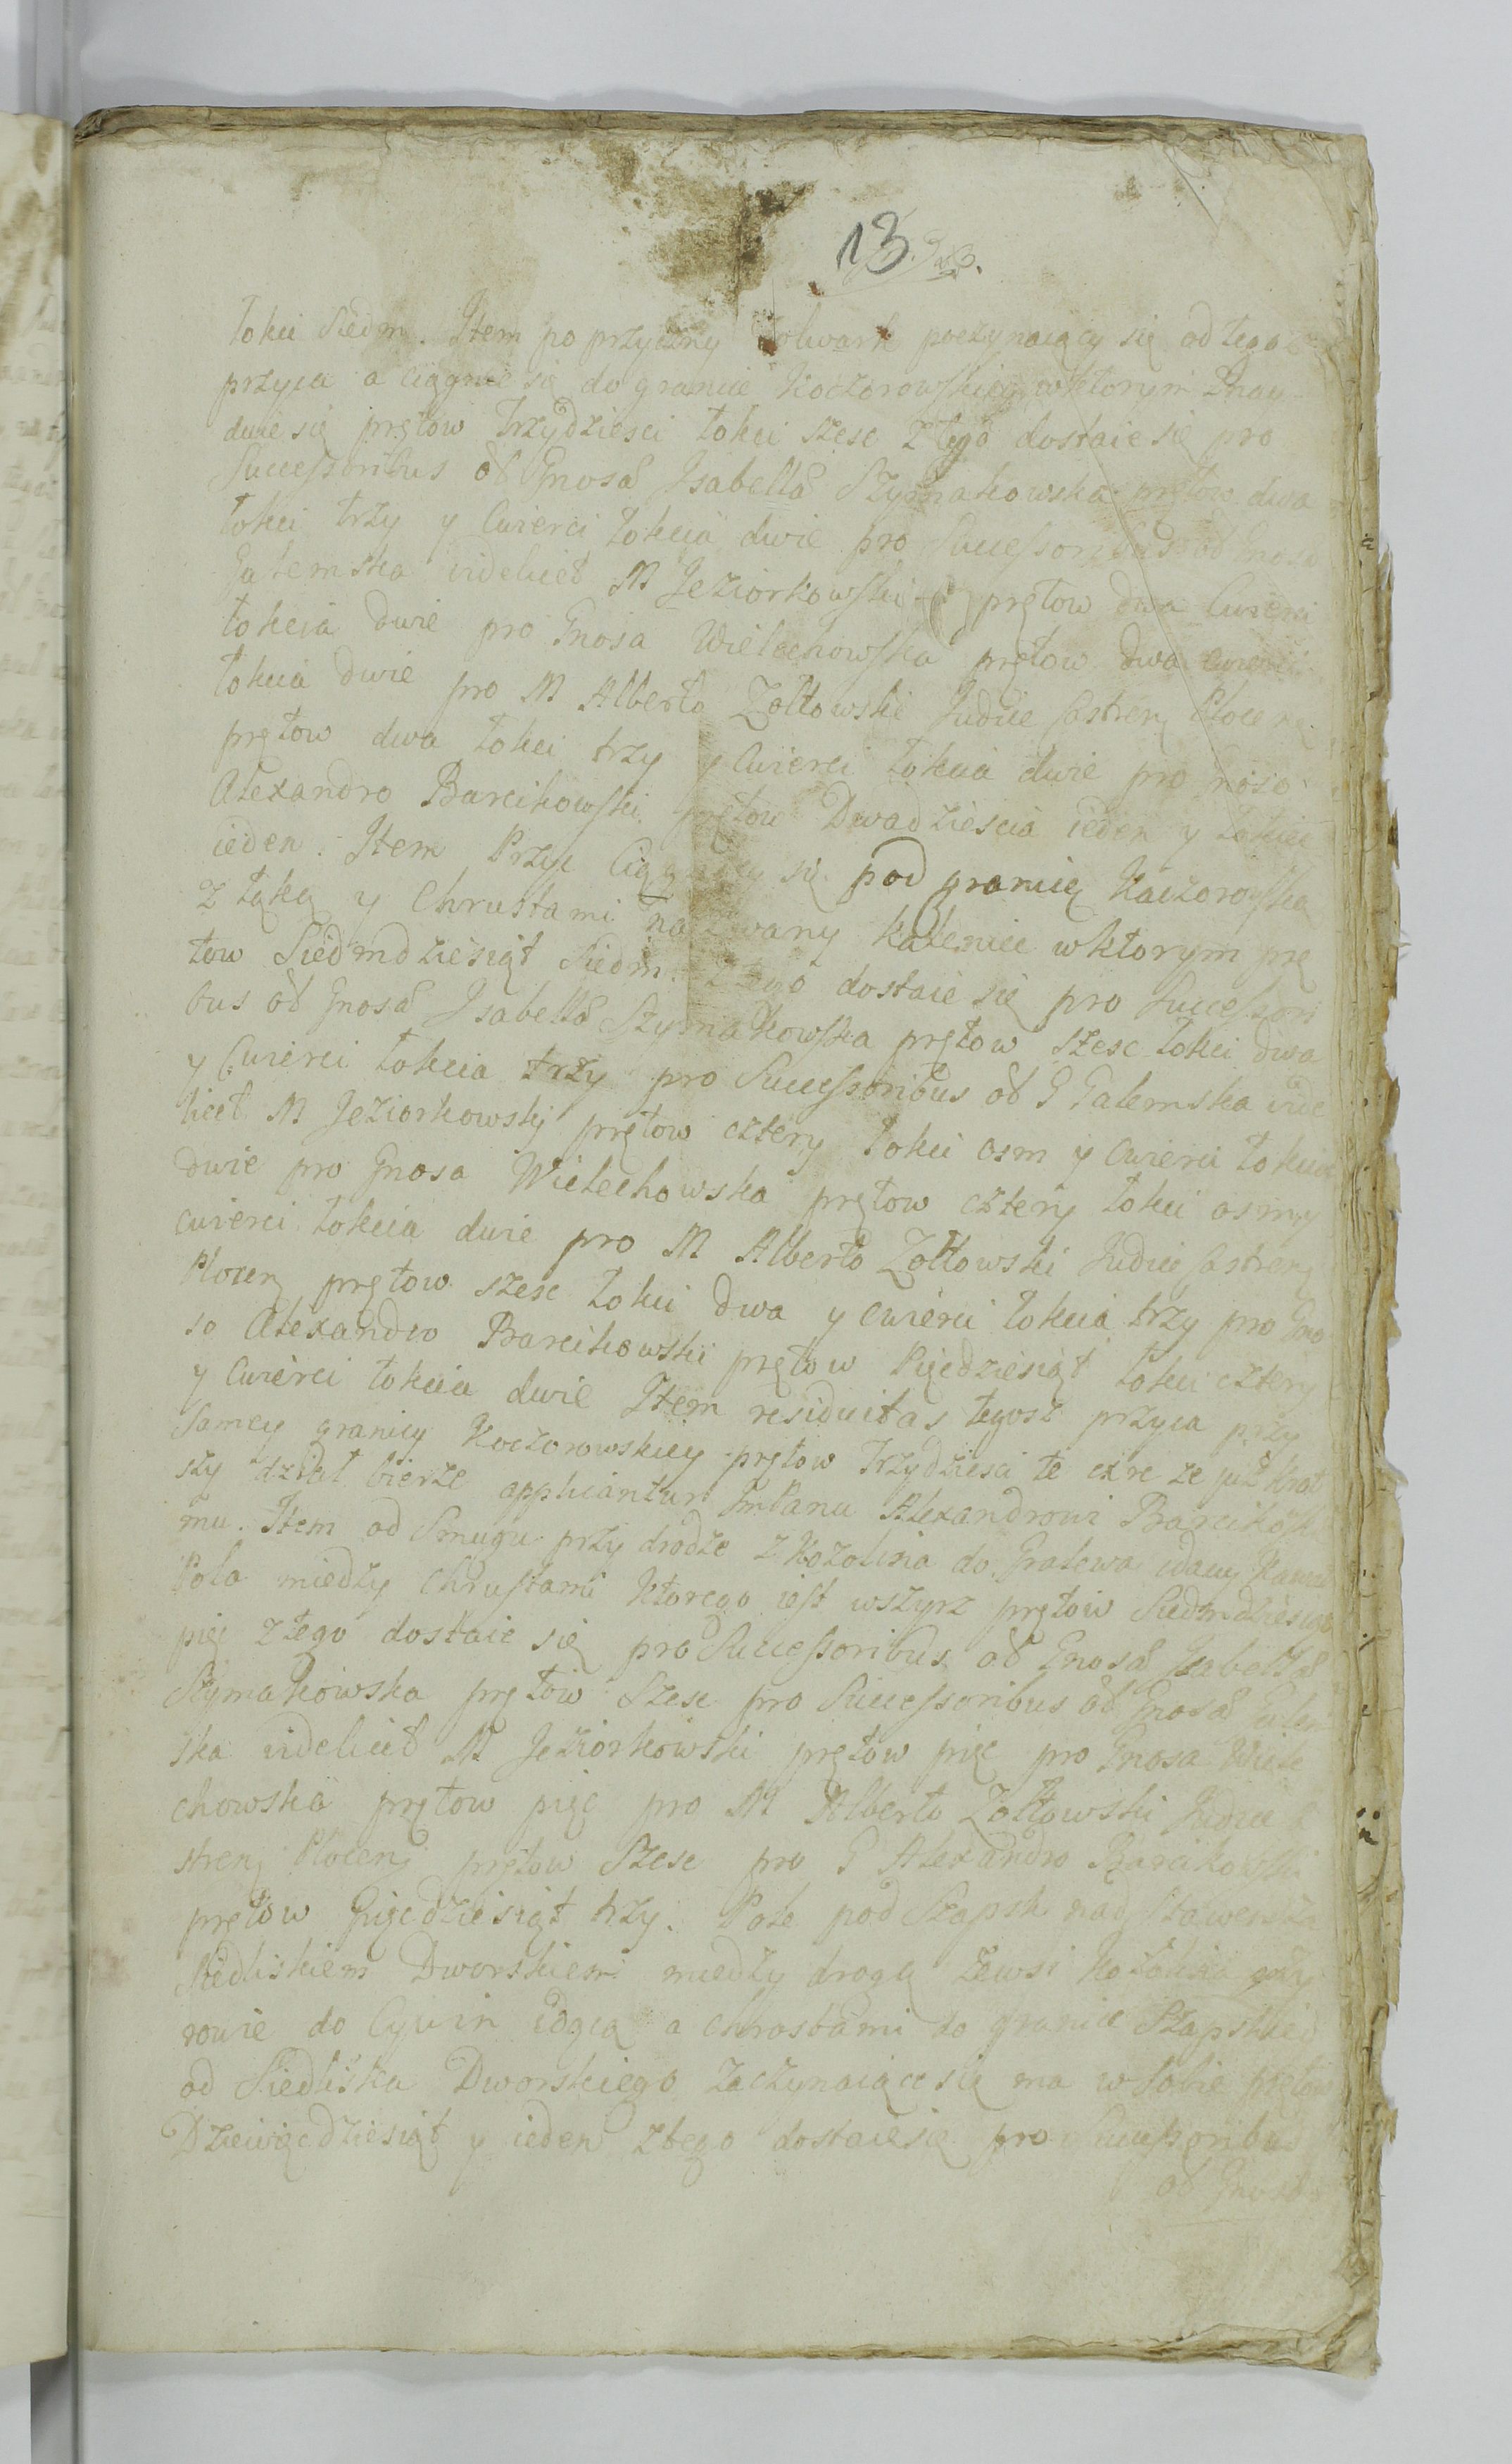 13
łokci Siedm. Item poprzyczny Folwark poczynaiący się od tegoż
przyca a ciągnie się do granice Koczorowskiey wktorym Znay
duie się prętow Trzydziesci łokci szesc Ztego dostaie się pro
Successoribus ob Gnosa Isabella Szymakowska prętow dwa
łokci trzy y Cwierci łokcia dwie pro Successoribus ob Gnosa
Galemska videlicet M Jeziorkowski prętow dwa Cwierci
łokcia dwie pro Gnosa Wielechowska prętow dwa cwierci
łokcia dwie pro M Alberto Zołtowski Judice Castren Plocen
prętow dwa łokci trzy y Cwierci łokcia dwie pro Gnoso
Alexandro Barcikowski prętow Dwadziescia ieden y łokiec
ieden. Item Przyc Ciągnący się pod granicę Kaczorowską
z łąką y Chrustami nazwany Kalenice wktorym prę
tow Siedmdziesiąt Siedm. Ztego dostaie się pro Successori
bus ob Gnosa Isabella Szymakowska prętow szesc łokci dwa
y Cwierci łokcia trzy pro Successoribus ob G Galemska vide
licet M Jeziorkowski prętow cztery łokci osm y Cwierci łokcia
dwie pro Gnosa Wielechowska prętow cztery łokci osm y
cwierci łokcia dwie pro M Alberto Zołtowski Judice Castren
Plocen prętow szesc łokci dwa y cwierci łokcia trzy pro Gno
so Alexandro Barcikowski prętow Pięcdziesiąt łokci cztery
y Cwierci łokcia dwie Item residuitas tegosz przyca przy
samey granicy Koczorowskiey prętow Trzydziesci te ex re ze iuż krot
szy dział bierze applicantur ImPanu Alexandrowi Barcikowski
mu. Item od Smugu przy drodze z Kozolina do Gralewa idący Kawał
Pola między Chrustami ktorego iest wszyrz prętow Siedmdziesiąt
pięc ztego dostaie się pro Successoribus ob Gnosa Isabella
Szymakowska prętow Szesc pro Successoribus ob Gnosa Galem
ska videlicet M Jeziorkowski prętow pięc pro Gnosa Wiele
chowska prętow pięc pro M Alberto Zołtowski Judice Ca
stren Plocen prętow Szesc pro G Alexandro Barcikowski
prętow Pięcdziesiąt trzy. Pole pod Szapsk nad
Siedliskiem Dworskiem między drogą zewsi
rowie do Cywin idącą a chrostami do granice Szapskie
od Siedliska Dworskiego Zaczynaiące się ma wsobie prętow
Dziewięcdziesiąt y ieden ztego dostaie się pro Successoribus
ob Gnosa